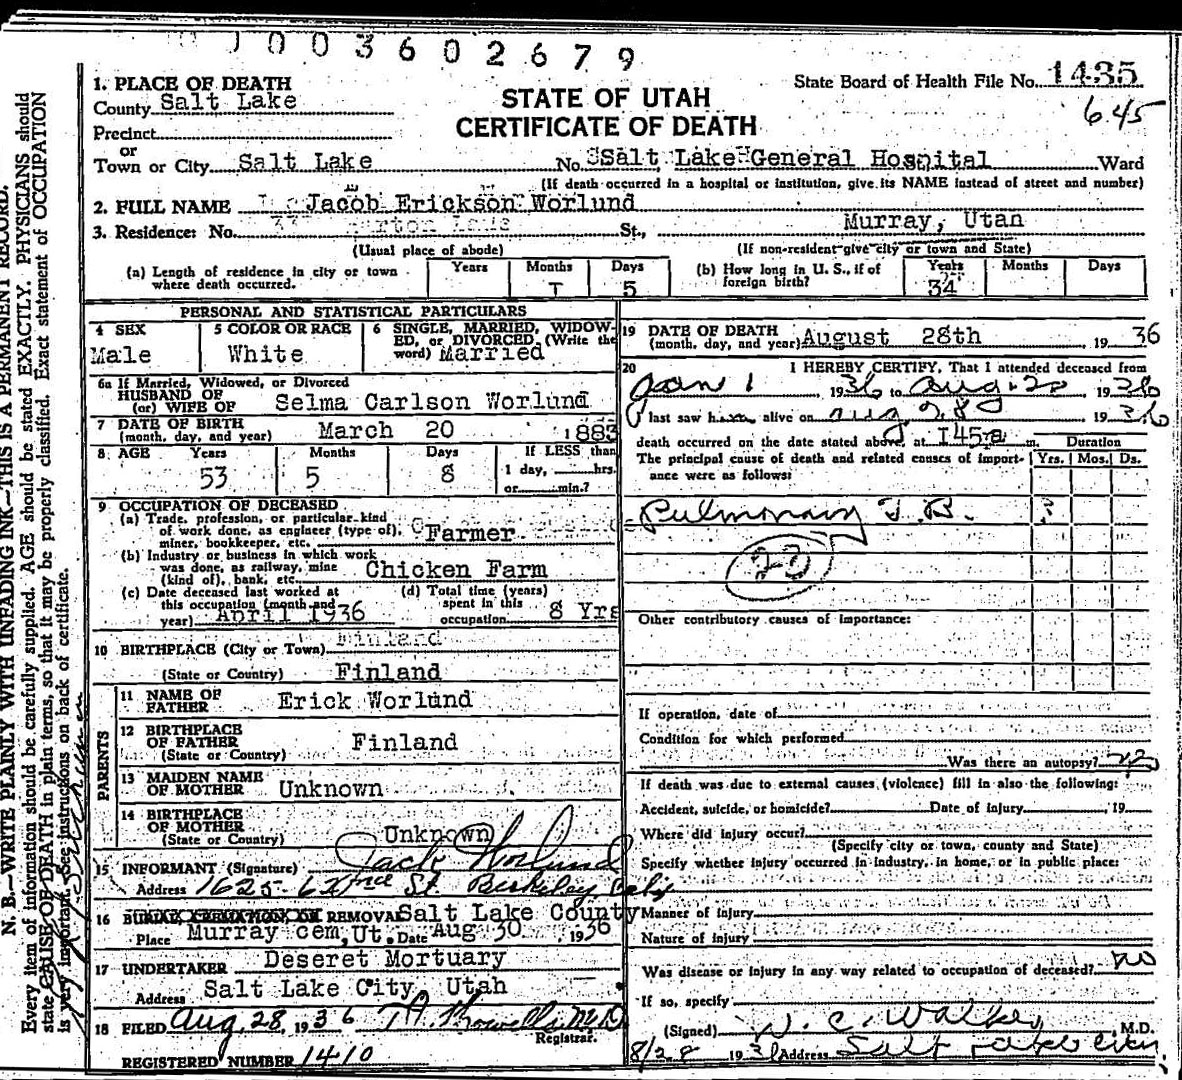 0 0 3 6 0 2 6 7 9
1. PLACE OF DEATH
State Board of Health File No. 1435
County Salt Lake
STATE OF UTAH
645
Precinct
CERTIFICATE OF DEATH
or
Town or City Salt Lake No. Salt Lake General Hospital Ward
(If death occurred in a hospital or institution, give its NAME instead of street and number)
2. FULL NAME Jacob Erickson Worlund
3. Residence: No. St., Murray, Utan
(Usual place of abode) (If non-resident give city or town and State)
(a) Length of residence in city or town where death occurred. Years Months Days 5
(b) How long in U. S., if of foreign birth? Years 34 Months Days
PERSONAL AND STATISTICAL PARTICULARS
4 SEX Male
5 COLOR OR RACE White
6 SINGLE, MARRIED, WIDOWED, or DIVORCED (Write the word) Married
6a If Married, Widowed, or Divorced
HUSBAND OF
(or) WIFE OF Selma Carlson Worlund
7 DATE OF BIRTH
(month, day, and year) March 20 1883
8 AGE Years Months Days If LESS than
53 5 8 1 day, hrs.
or min.?
9 OCCUPATION OF DECEASED
(a) Trade, profession, or particular kind
of work done, as engineer (type of), Farmer
miner, bookkeeper, etc.
(b) Industry or business in which work
was done, as railway, mine Chicken Farm
(kind of), bank, etc.
(c) Date deceased last worked at
this occupation (month and
year) April 1936
(d) Total time (years)
spent in this
occupation 8 Yrs
10 BIRTHPLACE (City or Town) Finland
(State or Country) Finland
PARENTS
11 NAME OF
FATHER Erick Worlund
12 BIRTHPLACE
OF FATHER Finland
(State or Country)
13 MAIDEN NAME
OF MOTHER Unknown
14 BIRTHPLACE
OF MOTHER
(State or Country) Unknown
15 INFORMANT (Signature) Jack Worlund
Address 1625-62nd St. Berkeley Calif
16 BURIAL CREMATION OR REMOVAL Salt Lake County
Place Murray cem, Ut. Date Aug 30 1936
17 UNDERTAKER Deseret Mortuary
Address Salt Lake City, Utah
18 FILED Aug. 28, 1936 M.D.
Registrar.
REGISTERED NUMBER 1410
19 DATE OF DEATH
(month, day, and year) August 28th 1936
20 I HEREBY CERTIFY, That I attended deceased from
Jan 1 1936 to Aug. 1936
I last saw him alive on Aug 28 1936
death occurred on the date stated above, at 145a m. Duration
The principal cause of death and related causes of importance were as follows: Yrs. Mos. Ds.
Pulmonary T.B. ?
23
Other contributory causes of importance:
If operation, date of
Condition for which performed
Was there an autopsy? no
If death was due to external causes (violence) fill in also the following:
Accident, suicide, or homicide? Date of injury 19
Where did injury occur?
(Specify city or town, county and State)
Specify whether injury occurred in industry, in home, or in public place:
Manner of injury
Nature of injury
Was disease or injury in any way related to occupation of deceased? no
If so, specify
(Signed) W. C. Walker M.D.
8/28 1936 Address Salt Lake City
N. B.—WRITE PLAINLY WITH UNFADING INK—THIS IS A PERMANENT RECORD.
Every item of information should be carefully supplied. AGE should be stated EXACTLY. PHYSICIANS should
state CAUSE OF DEATH in plain terms, so that it may be properly classified. Exact statement of OCCUPATION
is very important. See instructions on back of certificate.